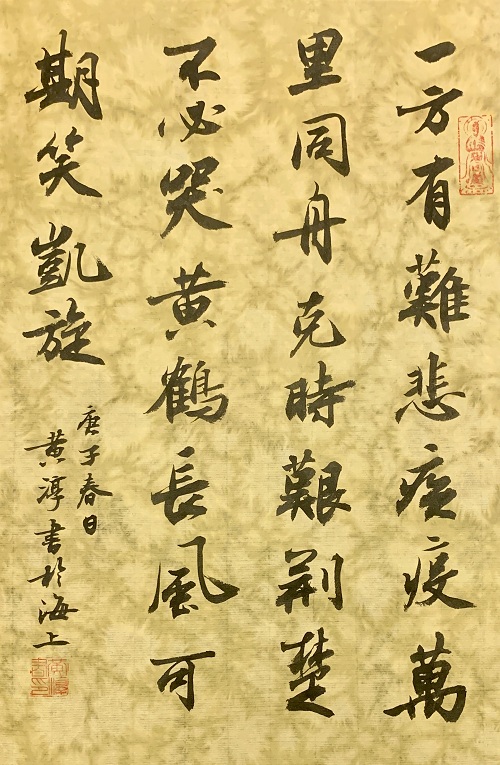 一方有難悲疾疫萬
里同舟克時艱荆楚
不必哭黄鶴長風可
期笑凱旋
庚子春日
黄淳書於海上